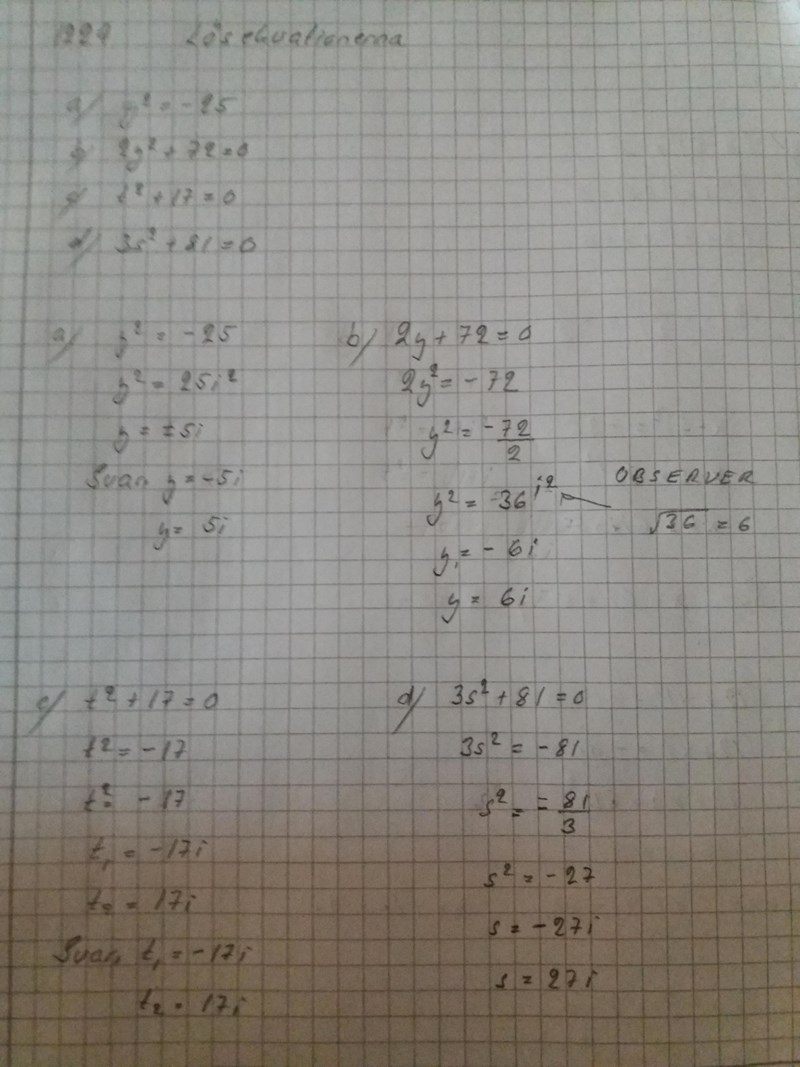 1229 Lös ekvationerna
a/ y² = -25
b/ 2y² + 72 = 0
c/ t² + 17 = 0
d/ 3s² + 81 = 0
a/ y² = -25
y² = 25i²
y = ±5i
Svar, y = -5i
y = 5i
b/ 2y + 72 = 0
2y² = -72
y² = -72/2
y² = -36 i²
OBSERVER
√36 = 6
y₁ = - 6i
y = 6i
c/ t² + 17 = 0
t² = -17
t² = -17
t₁ = -17i
t₂ = 17i
Svar, t₁ = -17i
t₂ = 17i
d/ 3s² + 81 = 0
3s² = -81
s² = -81/3
s² = -27
s = -27i
s = 27i